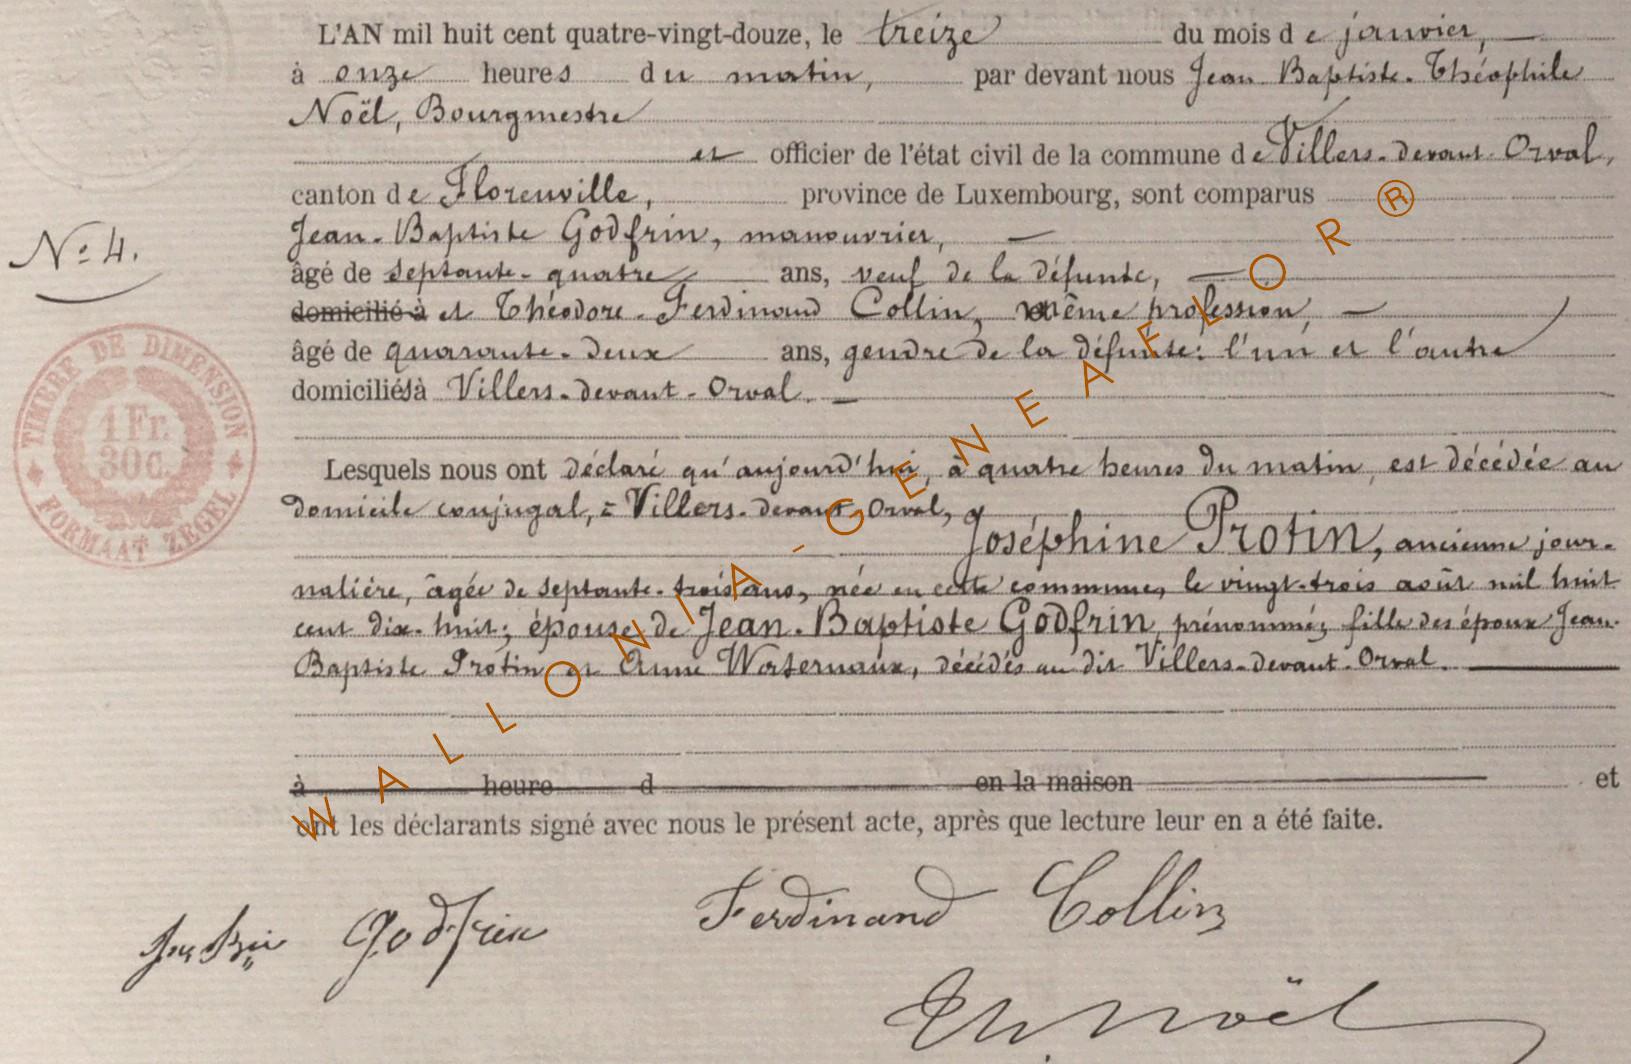 L'AN mil huit cent quatre-vingt-douze, le treize du mois de janvier, —
à onze heures du matin, par devant nous Jean Baptiste-Théophile
Noël, Bourgmestre
et officier de l'état civil de la commune de Villers-devant-Orval,
canton de Florenville, province de Luxembourg, sont comparus
Jean-Baptiste Godfrin, manouvrier, —
N° 4.
âgé de septante-quatre ans, veuf de la défunte, —
domicilié à et Théodore-Ferdinand Collin, même profession, —
âgé de quarante-deux ans, gendre de la défunte: l'un et l'autre
domiciliés à Villers-devant-Orval. —
TIMBRE DE DIMENSION
1 Fr.
30 c.
FORMAAT ZEGEL
Lesquels nous ont déclaré qu'aujourd'hui, à quatre heures du matin, est décédée au
domicile conjugal, à Villers-devant-Orval,
Joséphine Protin, ancienne jour-
nalière, âgée de septante-trois ans, née en cette commune, le vingt-trois août mil huit
cent dix-huit; épouse de Jean-Baptiste Godfrin, prénommé; fille des époux Jean-
Baptiste Protin et Anne Waternaux, décédés au dit Villers-devant-Orval.
à heure d en la maison et
ont les déclarants signé avec nous le présent acte, après que lecture leur en a été faite.
Godfrin Ferdinand Collin
Th. Noël
WALLONIA-GENEAFLOR®